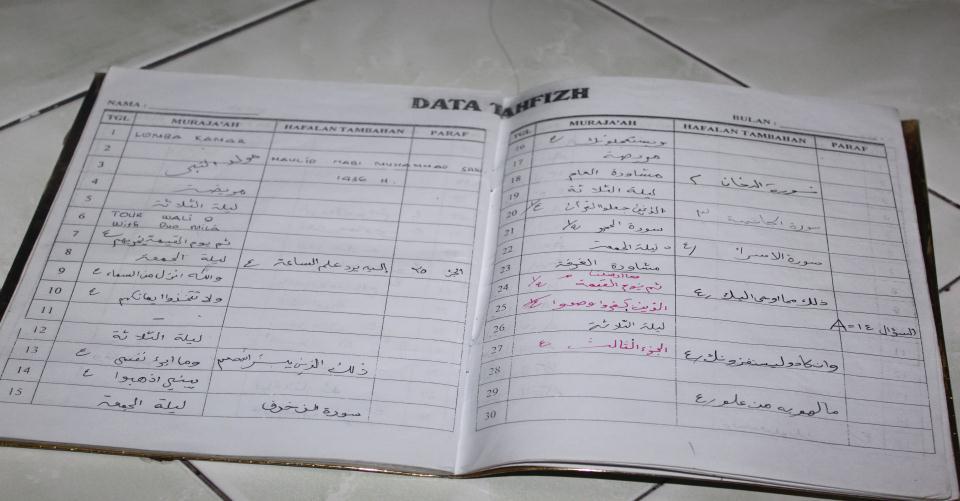 DATA TAHFIZH
NAMA :
TGL MURAJA'AH HAFALAN TAMBAHAN PARAF
1 LOMBA KAMAR
2
3 مولد النبي MAULID NABI MUHAMMAD SAW
4 مريضة 1436 H.
5 ليلة الثلاثة
6 TOUR WALI 9
7 With Duo Mila
8 ثم يوم القيمة ع
ليلة الجمعة إليه يرد علم الساعة ع الجزء ٢٥
9 والله انزل من السماء ع
10 ولا تتخذوا ايمانكم ع
11
12 ليلة الثلاثة
13 وما ابرئ نفسي ع ذلك الذي يبشر
14 يبني اذهبوا ع
15 ليلة الجمعة سورة الزخرف
BULAN :
TGL MURAJA'AH HAFALAN TAMBAHAN PARAF
16 ويستعجلونك ع
17 مريضة
18 مشاورة العام سورة الدخان
19 ليلة الثلاثة
20 الذين جعلوا القرآن سورة الجاثية
21 سورة الحجر
22 ليلة الجمعة سورة الاسراء
23 مشاورة الغرفة
24 ثم يوم القيمة ذلك مما اوحى اليك
25 الذين كفروا وصدوا السؤال ١٤ = A
26 ليلة الثلاثة
27 الجزء الثالث ع وان كادوا ليستفزونك
28
29
30